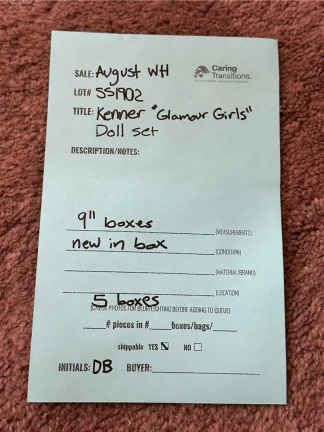 SALE: August WH
Caring
Transitions.
LOT# SS1902
TITLE: Kenner "Glamour Girls"
Doll set
DESCRIPTION/NOTES:
9" boxes (MEASUREMENTS)
new in box (CONDITION)
(MATERIAL/BRAND)
(LOCATION)
5 boxes
PHOTOS FOR BEFORE ADDING TO QUEUE)
# pieces in # boxes/bags/
shippable YES NO
INITIALS: DB BUYER: